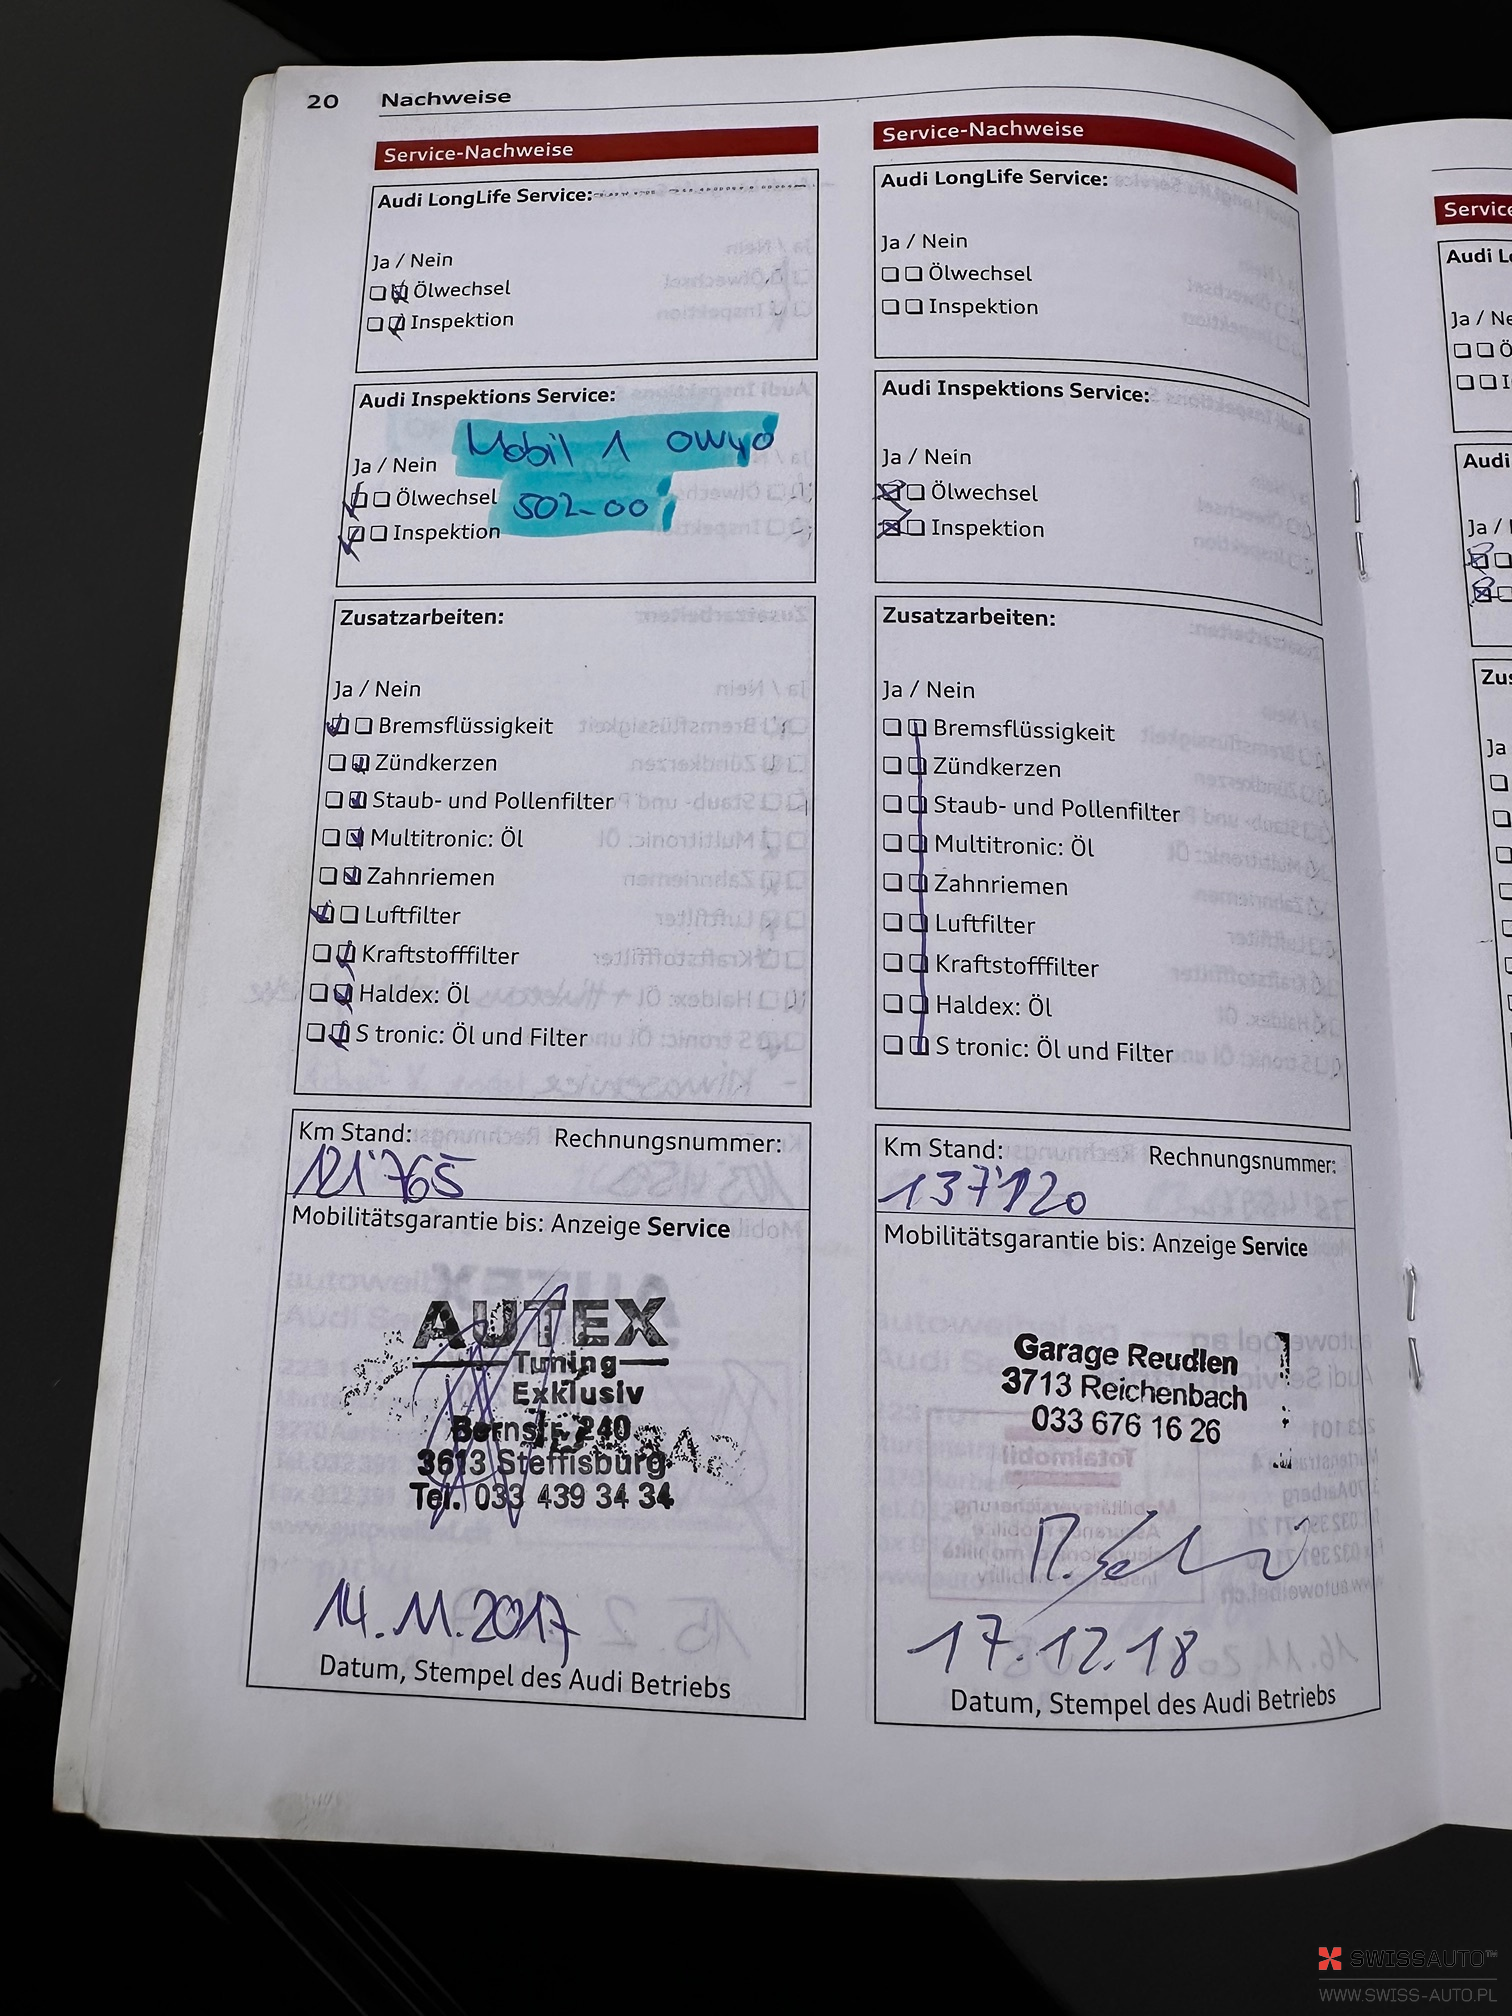 20 Nachweise
Service-Nachweise
Audi LongLife Service:
Ja / Nein
Ölwechsel
Inspektion
Audi Inspektions Service:
Mobil 1 0W40
Ja / Nein
Ölwechsel 502-00
Inspektion
Zusatzarbeiten:
Ja / Nein
Bremsflüssigkeit
Zündkerzen
Staub- und Pollenfilter
Multitronic: Öl
Zahnriemen
Luftfilter
Kraftstofffilter
Haldex: Öl
S tronic: Öl und Filter
Km Stand: Rechnungsnummer:
121'765
Mobilitätsgarantie bis: Anzeige Service
AUTEX
Tuning
Exklusiv
Bernstr. 240
3613 Steffisburg
Tel. 033 439 34 34
14.11.2017
Datum, Stempel des Audi Betriebs
Service-Nachweise
Audi LongLife Service:
Ja / Nein
Ölwechsel
Inspektion
Audi Inspektions Service:
Ja / Nein
Ölwechsel
Inspektion
Zusatzarbeiten:
Ja / Nein
Bremsflüssigkeit
Zündkerzen
Staub- und Pollenfilter
Multitronic: Öl
Zahnriemen
Luftfilter
Kraftstofffilter
Haldex: Öl
S tronic: Öl und Filter
Km Stand: Rechnungsnummer:
137'120
Mobilitätsgarantie bis: Anzeige Service
Garage Reudlen
3713 Reichenbach
033 676 16 26
17.12.18
Datum, Stempel des Audi Betriebs
Audi
Ja / Nein
Audi
Ja /
Ja
SWISSAUTO™
WWW.SWISS-AUTO.PL